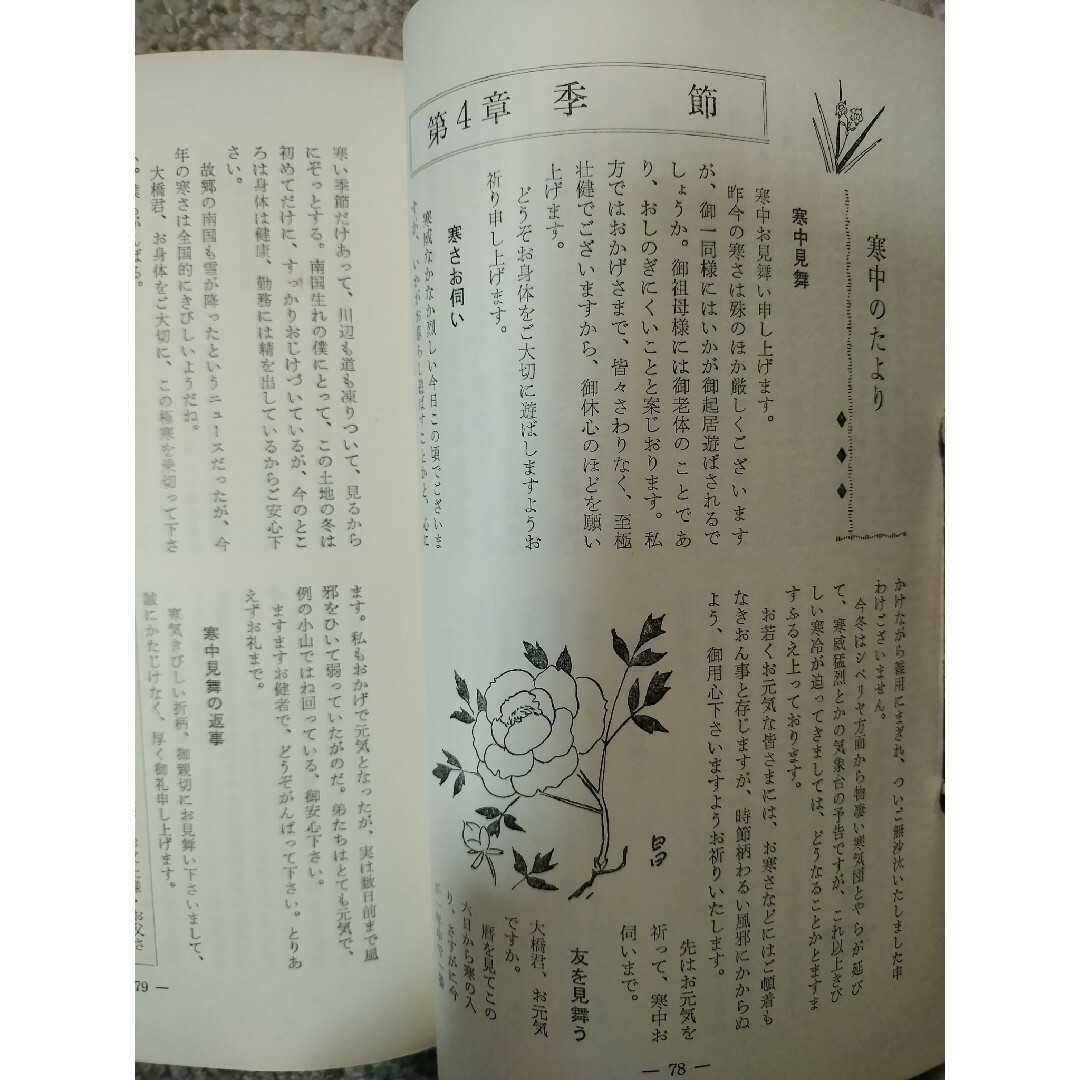 第4章 季 節
寒中のたより
寒中見舞
寒中お見舞い申し上げます。
昨今の寒さは殊のほか厳しくございます
が、御一同様にはいかが御起居遊ばされるで
しょうか。御祖母様には御老体のことであ
り、おしのぎにくいことと案じおります。私
方ではおかげさまで、皆々さわりなく、至極
壮健でございますから、御休心のほどを願い
上げます。
どうぞお身体をご大切に遊ばしますようお
祈り申し上げます。
寒さお伺い
寒威なかなか烈しい今日この頃でございま
かけながら雑用にまぎれ、ついご無沙汰いたしました申
わけございません。
今冬はシベリヤ方面から物凄い寒気団とやらが延び
て、寒威猛烈とかの気象台の予告ですが、これ以上きび
しい寒冷が迫ってきましては、どうなることかとますま
すふるえ上っております。
お若くお元気な皆さまには、お寒さなどにはご頓着も
なきおん事と存じますが、時節柄わるい風邪にかからぬ
よう、御用心下さいますようお祈りいたします。
先はお元気を
祈って、寒中お
伺いまで。
友を見舞う
大橋君、お元気
ですか。
暦を見てこの
六日から寒の入
り、さすがに今
昌
— 78 —
寒い季節だけあって、川辺も道も凍りついて、見るから
にぞっとする。南国生れの僕にとって、この土地の冬は
初めてだけに、すっかりおじけづいているが、今のとこ
ろは身体は健康、勤務には精を出しているからご安心下
さい。
故郷の南国も雪が降ったというニュースだったが、今
年の寒さは全国的にきびしいようだね。
大橋君、お身体をご大切に、この極寒を乗切って下さ
ます。私もおかげで元気となったが、実は数日前まで風
邪をひいて弱っていたがのだ。弟たちはとても元気で、
例の小山ではね回っている、御安心下さい。
ますますお健者で、どうぞがんばって下さい。とりあ
えずお礼まで。
寒中見舞の返事
寒気きびしい折柄、御親切にお見舞い下さいまして、
誠にかたじけなく、厚く御礼申し上げます。
79 —